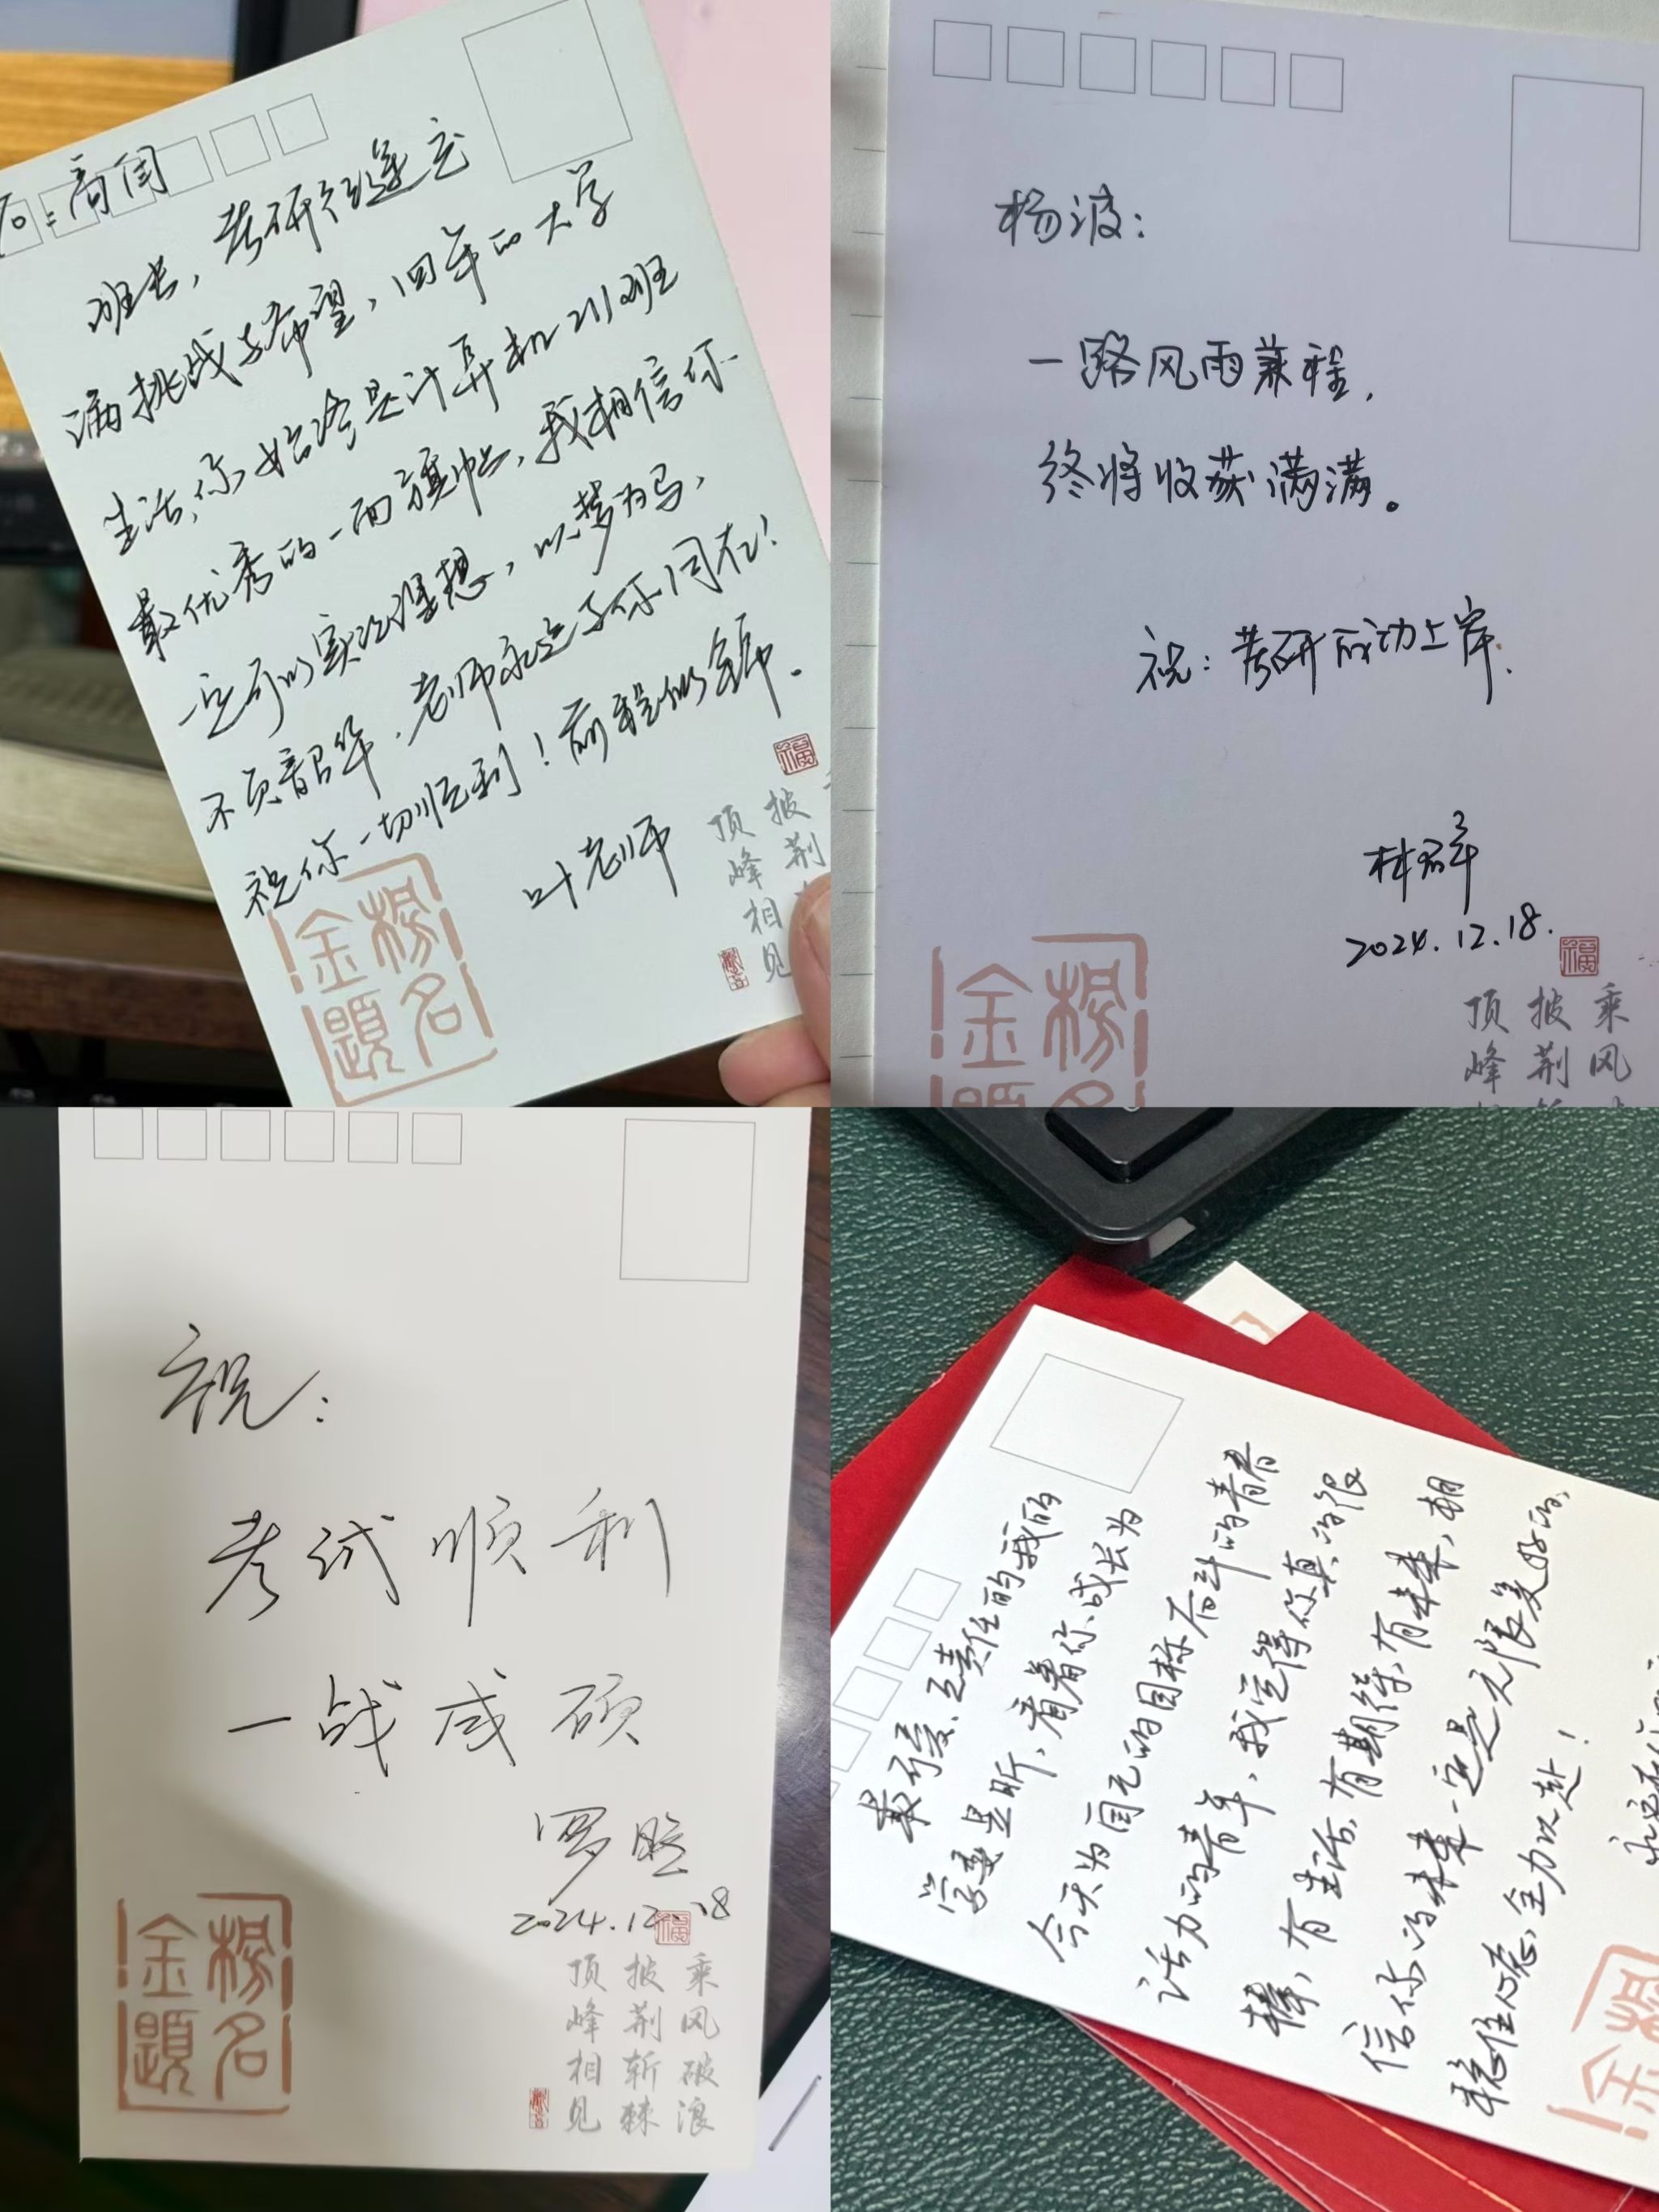 班长，考研征途充
满挑战与希望，四年的大学
生活，你始终是计算机211班
最优秀的一面旗帜，我相信你
一定可以实现理想，以梦为马，
不负韶华，老师永远与你同在！
祝你一切顺利！前程似锦。
叶老师
福
顶峰相见
披荆
金榜题名
杨波：
一路风雨兼程，
终将收获满满。
祝：考研成功上岸.
2024.12.18.
福
乘风
披荆
顶峰
金榜
祝：
考试顺利
一战成硕
2024.12.18
福
乘风破浪
披荆斩棘
顶峰相见
金榜题名
最可爱、负责任的我的
今天为自己的目标奋斗的青春
活力的青年，我觉得你真的很
棒，有生活，有期待，有未来，相
信你的未来一定是无限美好的，
稳住心态，全力以赴！